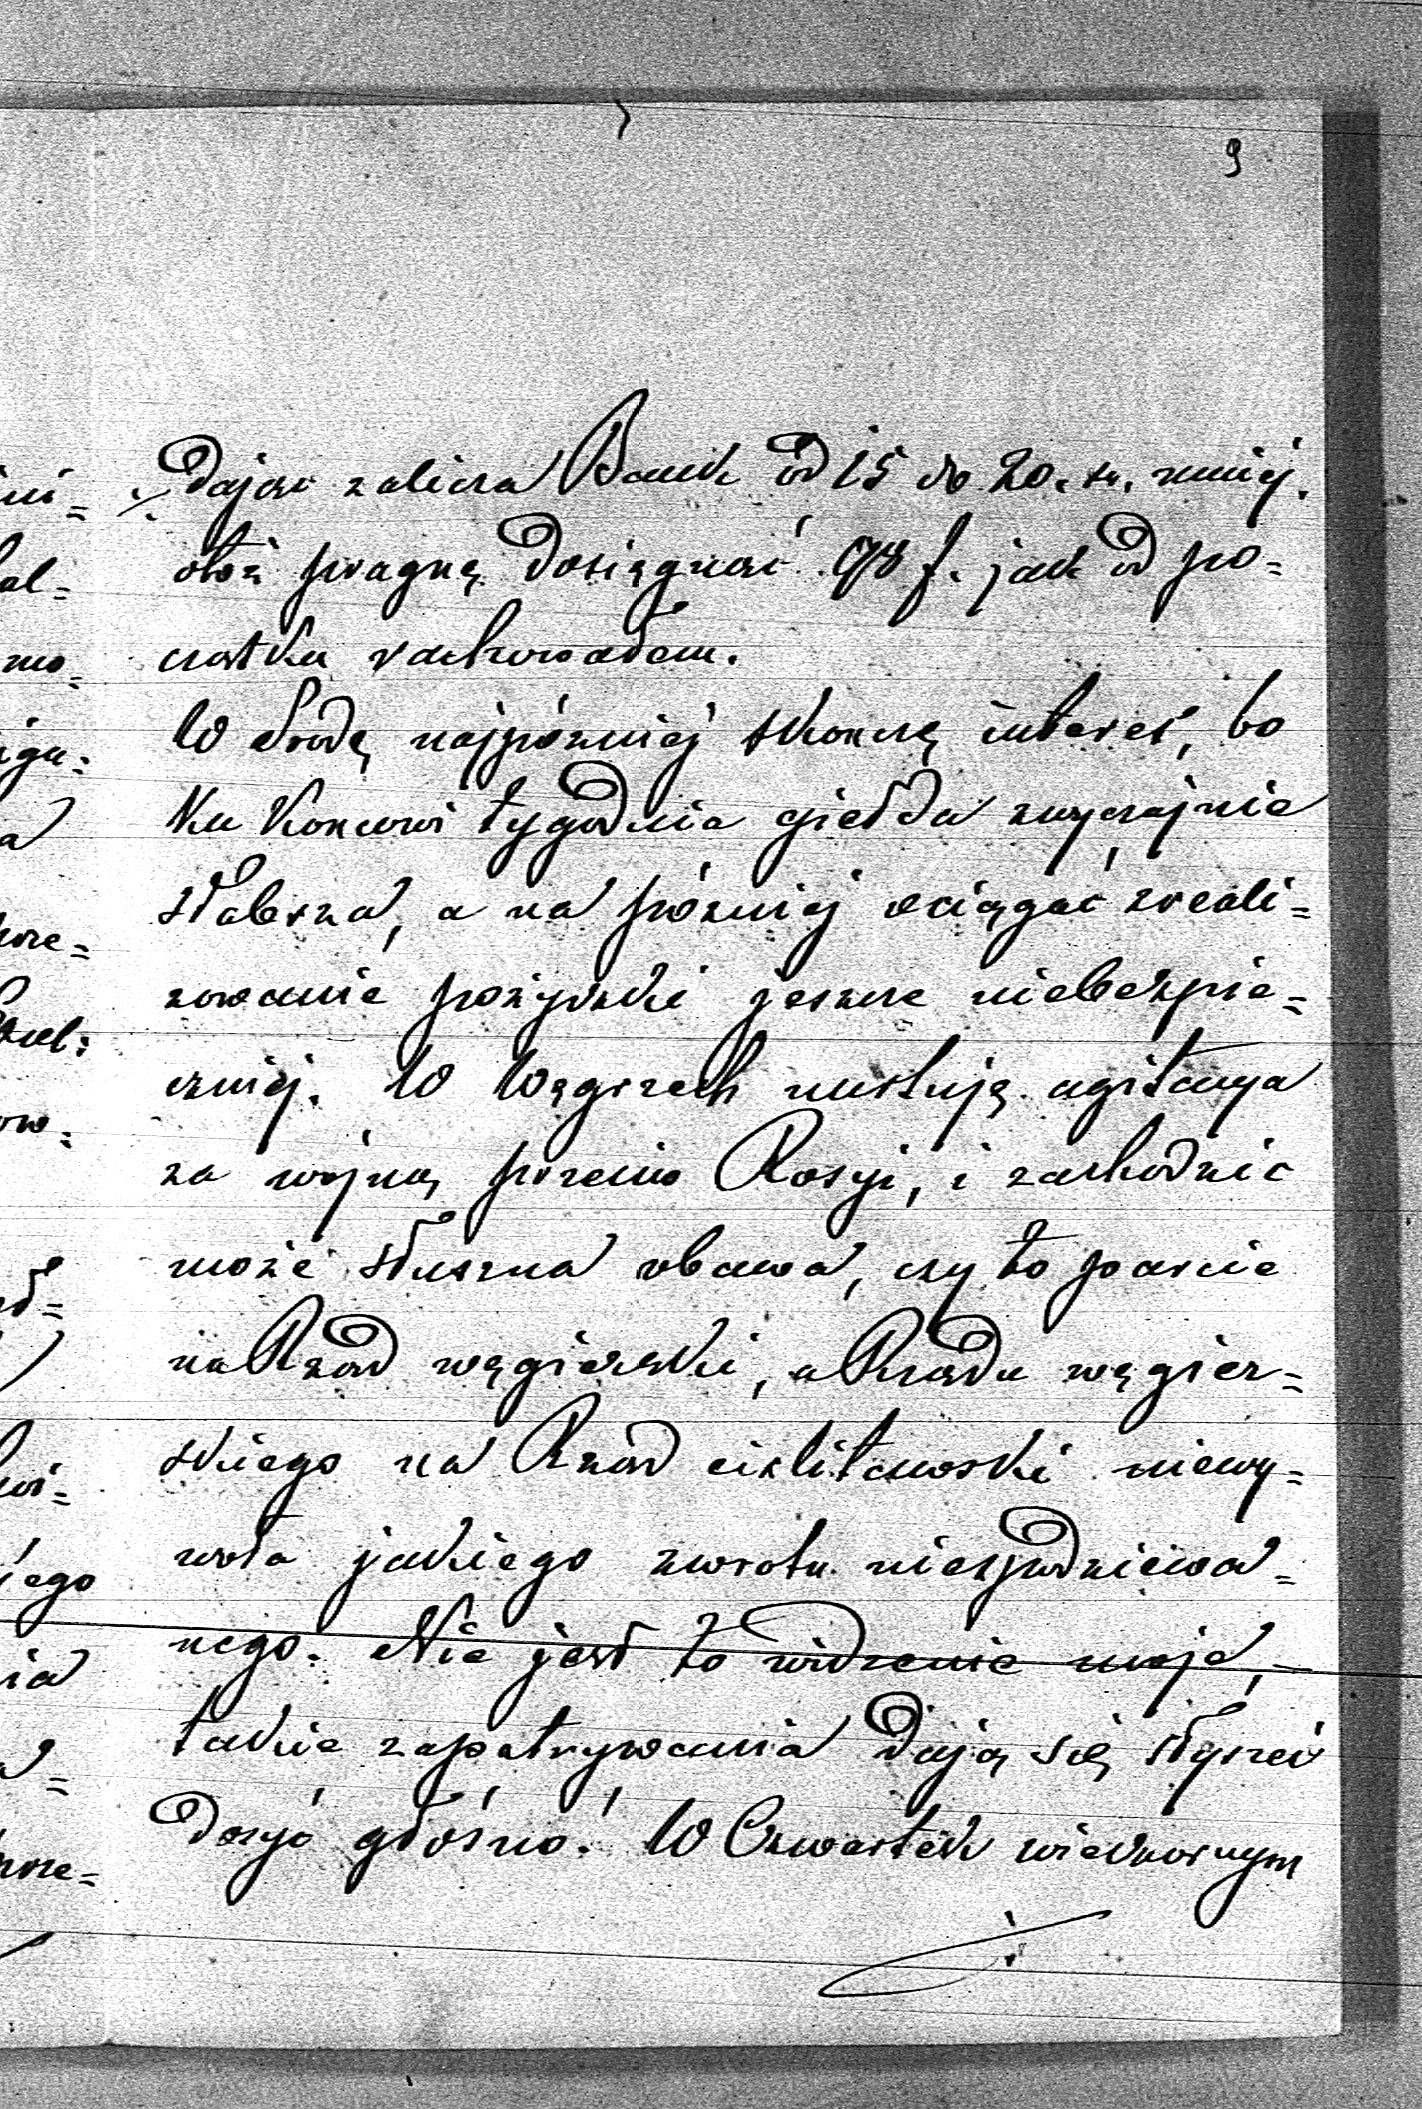 9
÷ dając zalicza Bank od 15 do 20. kr. mniej.
otóż pragnę dosięgnąć 78 f. jak od po=
czątku rachowałem.
W środę najpóźniej skończę interes, bo
ku końcowi tygodnia giełda zwyczajnie
słabsza, a na później ociągać zreali=
zowanie pożyczki jeszcze niebezpie=
czniej. W Węgrzech nurtuje agitacya
za wojną przeciw Rosyi, i zachodzić
może słuszna obawa, czy to parcie
na Rząd węgierski, a Rządu węgier=
skiego na Rząd cislitawski niewy=
woła jakiego zwrotu niespodziewa=
nego. Nie jest to widzenie moje,
takie zapatrywania dają się słyszeć
dosyć głośno. W Czwartek wieczornym